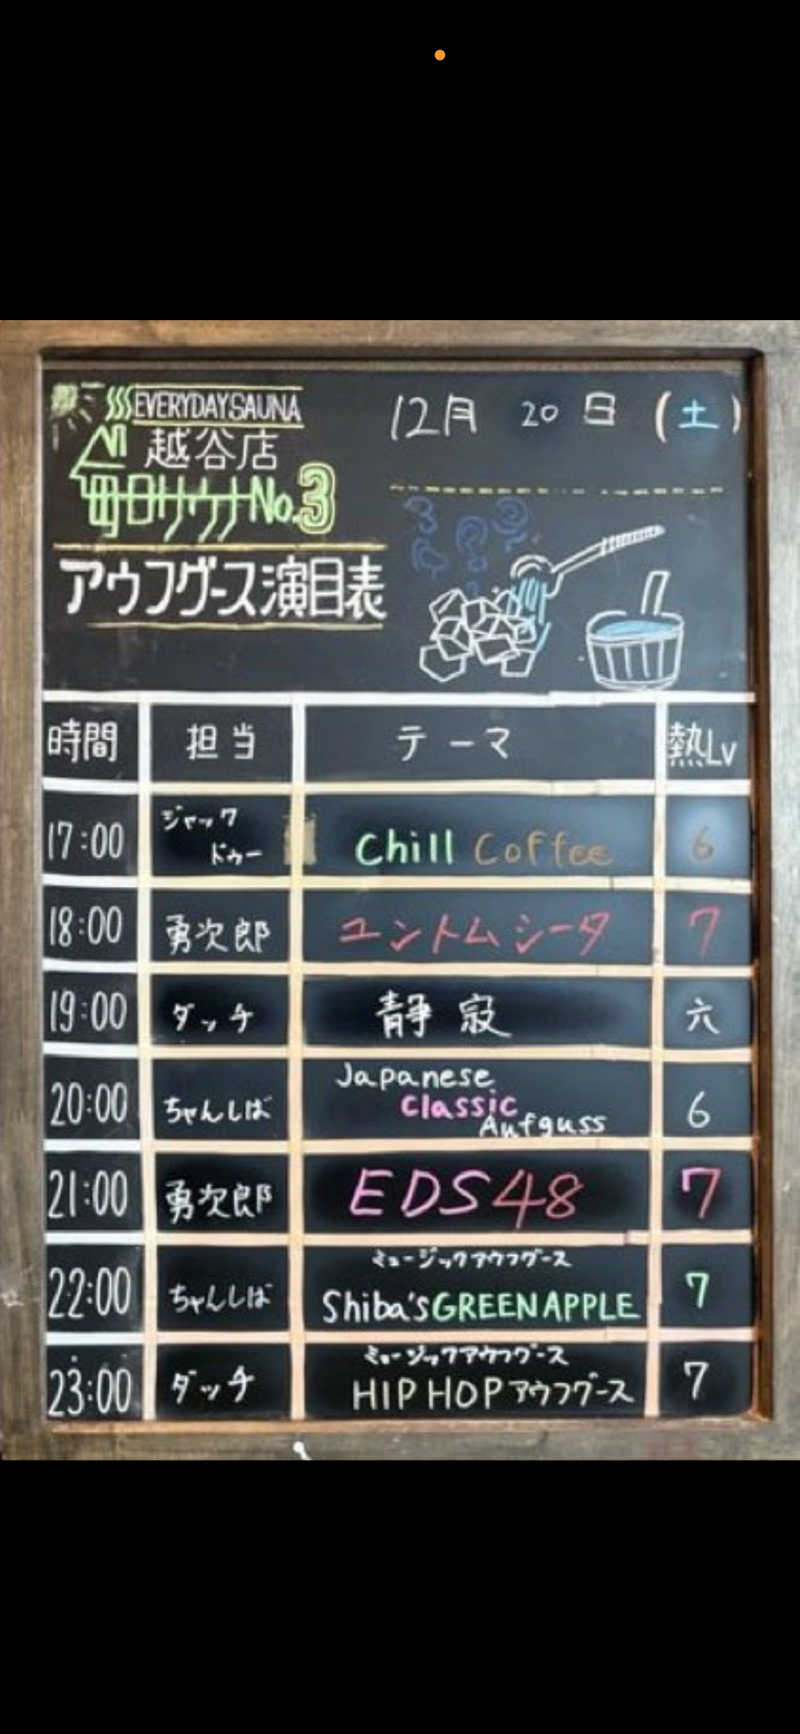 EVERYDAY SAUNA
越谷店
毎日サウナNo.3
アウフグース演目表
12月 20日 (土)
時間 担当 テーマ 熱Lv
17:00 ジャックドゥー Chill Coffee 6
18:00 勇次郎 ユントムシータ 7
19:00 ダッチ 静寂 六
20:00 ちゃんしば Japanese Classic Aufguss 6
21:00 勇次郎 EDS48 7
22:00 ちゃんしば ミュージックアウフグース Shiba's GREEN APPLE 7
23:00 ダッチ ミュージックアウフグース HIP HOP アウフグース 7